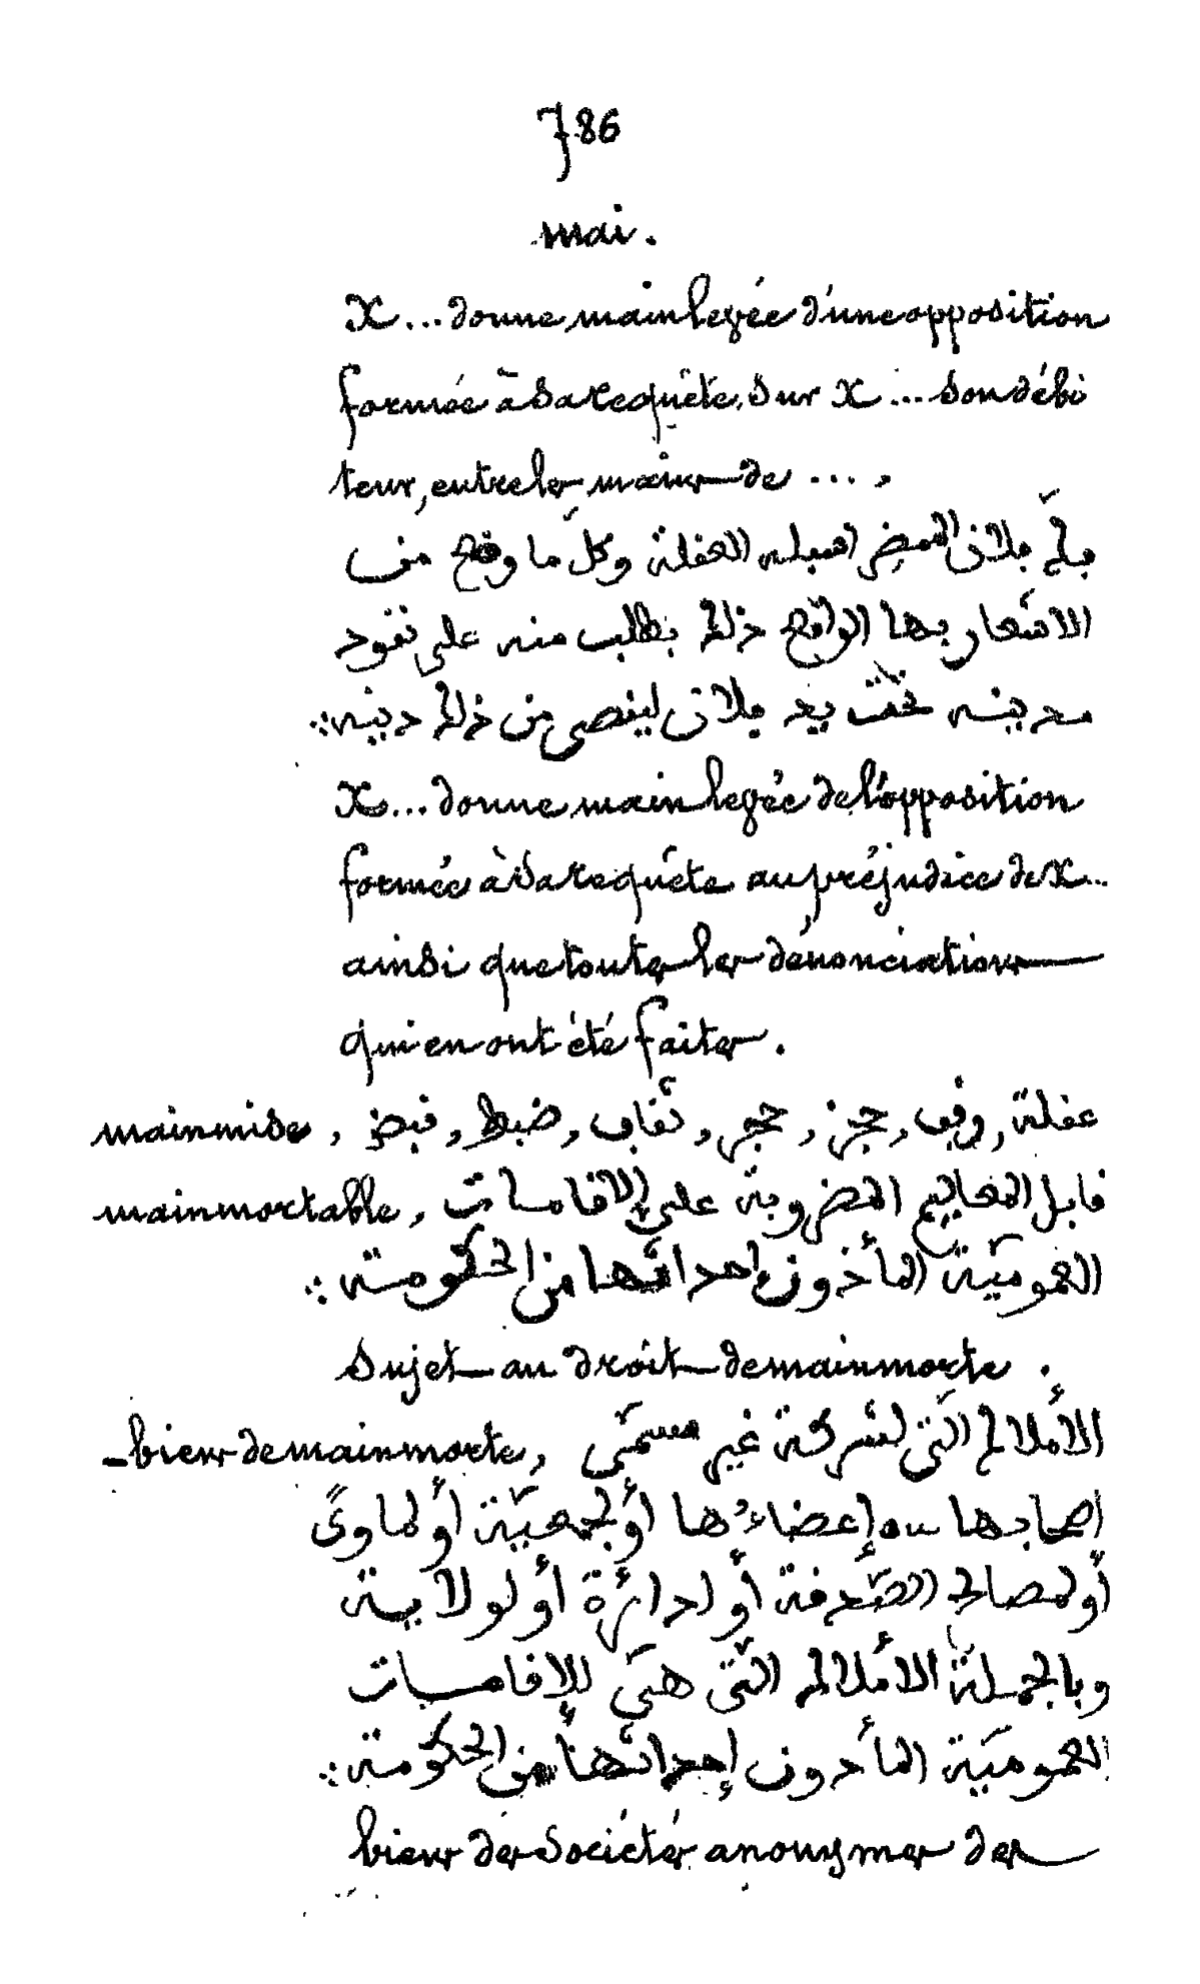 786
mai.
X... donne mainlevée d'une opposition
formée à sa requête, sur X... son débi
teur, entre les mains de ....
فلان العقلة وكلّ ما وقع من
الاشعار بها الواقع ذلك بطلب منه على نقود
مدينه تحت يد فلان ليتصى من ذلك دينه
X... donne mainlevée de l'opposition
formée à sa requête au préjudice de X...
ainsi que toutes les dénonciations
qui en ont été faites.
mainmise, عقلة, وقف, حجز, حجر, ثقاف, ضبط, قبض
mainmortable, قابل المعاليم المضروبة على الاقامات
العموميّة المأذون احداثها من الحكومة
sujet au droit de mainmorte.
- biens de mainmorte, الأملاك الّتي لشركة غير مسمّى
اصحابها ou إعضاءُها أو لجمعيّة أو لماوىً
أو لمصالح الصّدقة أو لدائرة أو لولاية
وبالجملة الأملاك الّتي هي للإقامات
العموميّة المأذون إحداثها من الحكومة
biens des sociétés anonymes des